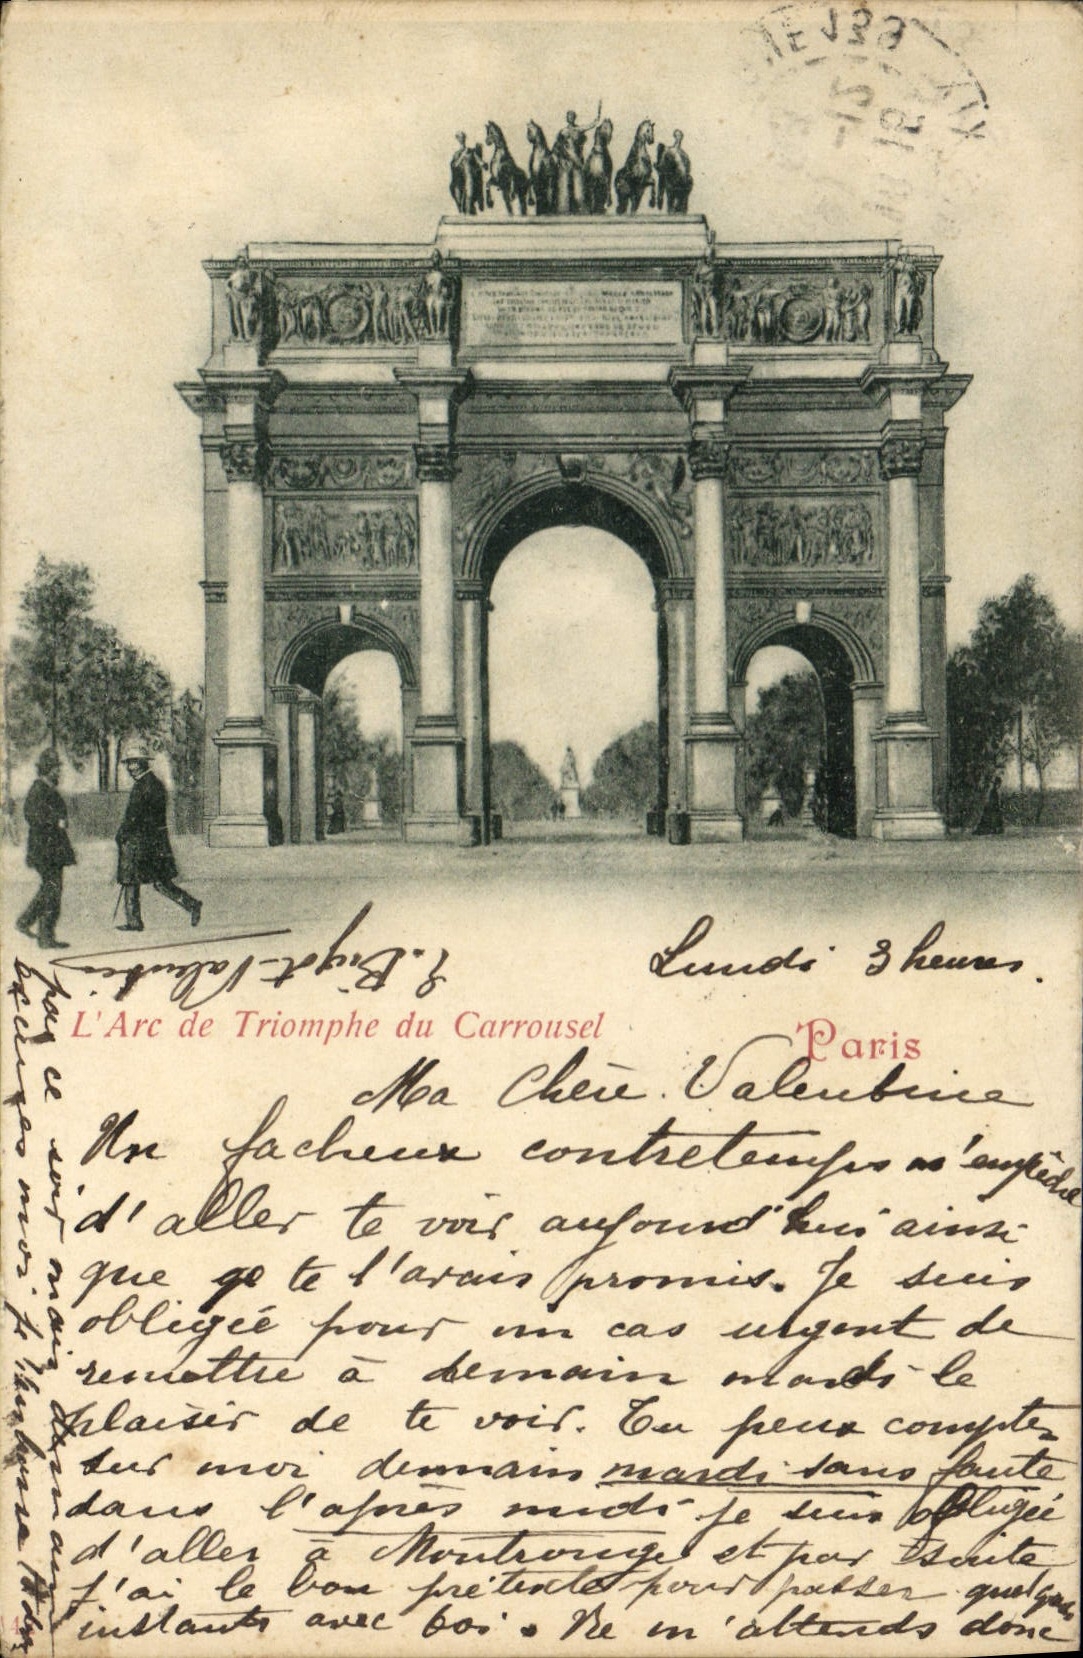 Lundi 3 heures.
L'Arc de Triomphe du Carrousel
Paris
Ma Chère Valentine
Un facheux contretemps m'empêche
d'aller te voir aujourd'hui ainsi
que je te l'avais promis. Je suis
obligée pour un cas urgent de
remettre à demain mardi le
plaisir de te voir. Tu peux compter
sur moi demain mardi sans faute
dans l'après midi je suis obligée
d'aller à Montrouge et par suite
j'ai le bon prétexte pour passer quelques
instants avec toi. Ne m'attends donc
pas ce soir mais demain
excuses moi je t'embrasse
Bigot-Valentin